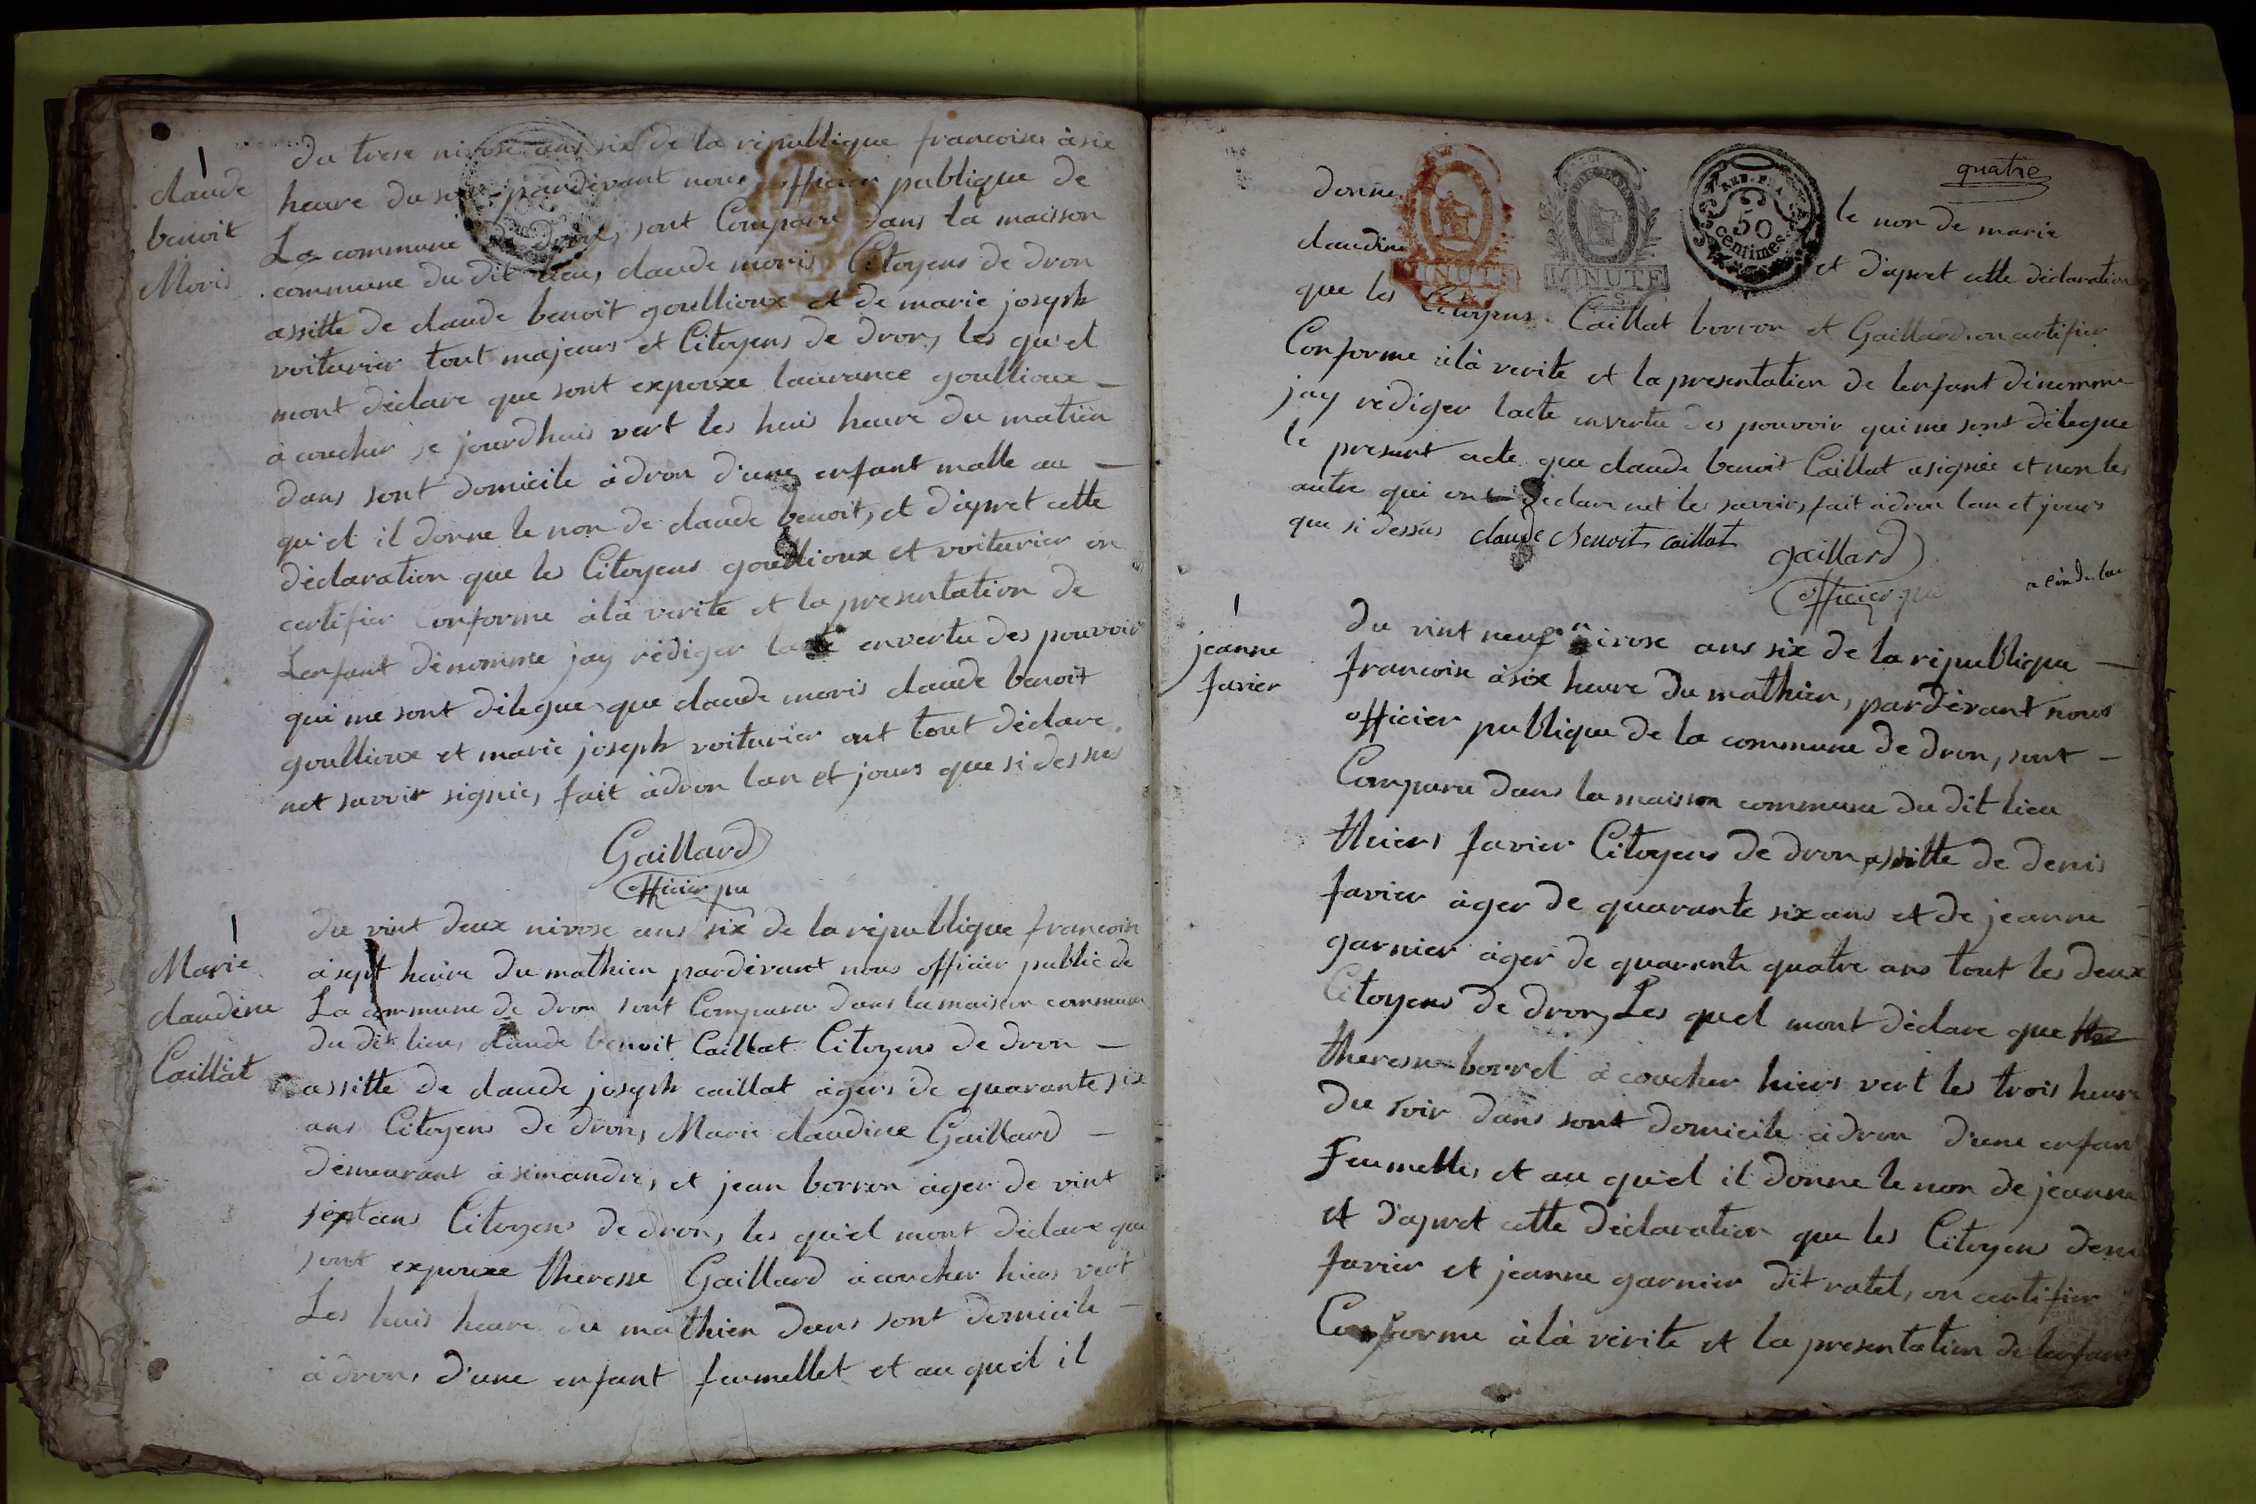 du trese nivose ans six de la rèpublique francoises àsix
heure du soir pardevant nous officier publique de
La commune de dron, sont Comparu dans la maison
commune du dit lieu, claude moris Citoyens de dron
assitte de claude benoit goullioux et de marie joseph
voiturier tout majeurs et Citoyens de dron, les qu'el
mont dèclare que sont expouxe laurance goullioux
àcoucher se jourdhuis vert les huis heure du matiin
dans sont domicile àdron d'une enfant malle au
qu'el il donne le non de claude benoit, et d'apret cette
dèclaration que les Citoyens goullioux et voiturier on
certifier Conforme àlà verite et la presentation de
Lenfant dènomme jay rèdiger lacte envertu des pouvoir
qui me sont dèlegue que claude moris claude benoit
goullioux et marie joseph voiturier ont tout dèclare
net savoir signie, fait àdron lan et jours que si dessus
Gaillard
officier pu
claude
benoit
Moris
du vint deux nivose ans six de la rèpublique francoise
àsept heure du mathien pardèvant nous officier public de
La commune de dron sont Comparu dans la maison commune
du dit lieu, claude benoit Caillat Citoyens de dron
assitte de claude joseph caillat àgers de quarante six
ans Citoyens de dron, Marie claudine Gaillard
dèmeurant àsimandre, et jean borron àger de vint
sept ans Citoyens de dron, les qu'el mont dèclare que
sont expouxe theresse Gaillard àcoucher hiers vert
Les huis heure du mathien dans sont domicile
àdron, d'une enfant feumellet et au qu'el il
Marie
claudine
Caillat
quatre
donne le non de marie
claudine et d'apret cette dèclaration
que les Citoyens Caillat borron et Gaillard on certifier
Conforme àlà verite et la presentation de lenfant dènomme
jay rèdiger lacte envertu des pouvoir qui me sont dèlegue
le present acte que claude benoit Caillat asignie et non les
autre qui ont dèclare net les savoir, fait àdron lan et jours
que si dessus claude Benoit caillat
gaillard
officier pu
MINUTE
MINUTE
REP. FRA
50
centimes
du vint neuf nivose ans six de la rèpublique
francoise àsix heure du mathien, pardèvant nous
officier publique de la commune de dron, sont
Comparu dans la maison commune du dit lieu
thiers favier Citoyens de dron assitte de denis
favier àger de quarante six ans et de jeanne
garnier àger de quarente quatre ans tout les deux
Citoyens de dron, Les quel mont dèclare que
theresse borrel àcoucher hiers vert les trois heure
du soir dans sont domicile àdron d'une enfan
Feumelle, et au qu'el il donne le non de jeanne
et d'apret cette dèclaration que les Citoyens deni
favier et jeanne garnier dit ratel, on certifier
Conforme àlà vèrite et la presentation de lenfan
jeanne
favier